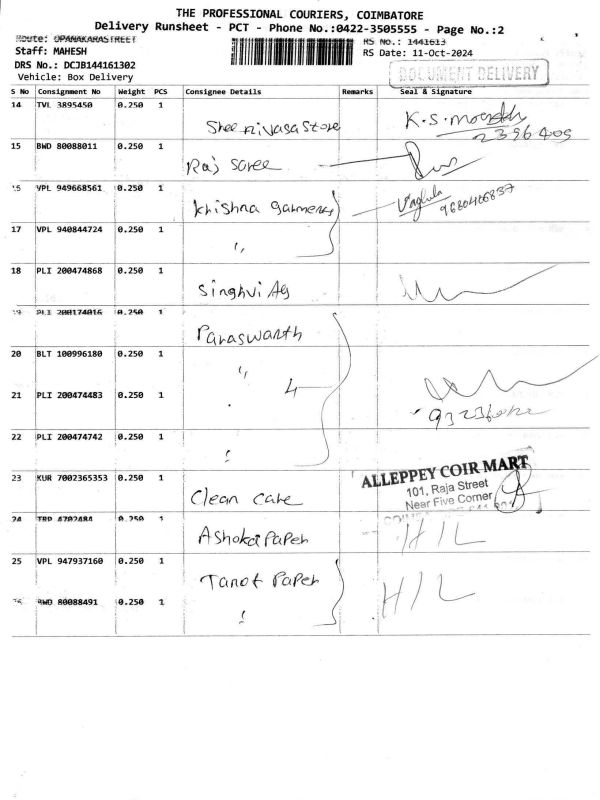 THE PROFESSIONAL COURIERS, COIMBATORE
Delivery Runsheet - PCT - Phone No.:0422-3505555 - Page No.:2
Route: OPANAKARASTREET
RS No.: 1441613
Staff: MAHESH
RS Date: 11-Oct-2024
DRS No.: DCJB144161302
DOCUMENT DELIVERY
Vehicle: Box Delivery
S No Consignment No Weight PCS Consignee Details Remarks Seal & Signature
14 TVL 3895450 0.250 1 Shree nivasa Store K.S.
15 BWD 80088011 0.250 1 Raj Saree
16 VPL 949668561 0.250 1 Krishna garments 9680406837
17 VPL 940844724 0.250 1 "
18 PLI 200474868 0.250 1 Singhvi Ag
19 PLI 200174016 0.250 1 Paraswanth
20 BLT 100996180 0.250 1 " 4
21 PLI 200474483 0.250 1
22 PLI 200474742 0.250 1
23 KUR 7002365353 0.250 1 Clean care
ALLEPPEY COIR MART
101, Raja Street
Near Five Corner
24 TRP 4702484 0.250 1 Ashoka Paper H/L
25 VPL 947937160 0.250 1 Tanot Paper H/L
26 BWD 80088491 0.250 1